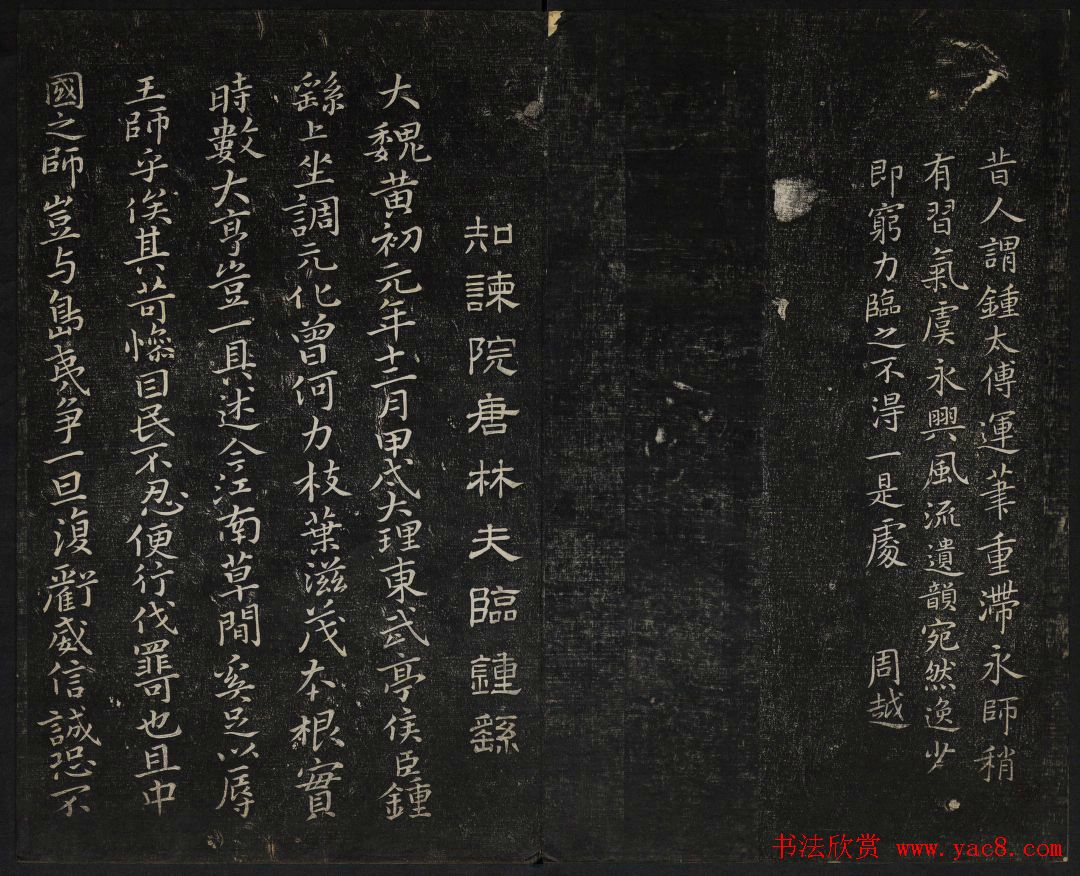 昔人謂鍾太傅運筆重滯永師稍
有習氣虞永興風流遺韻宛然逸少
即窮力臨之不淂一是處 周越
知諫院唐林夫臨鍾繇
大魏黄初元年十二月甲戌大理東武亭侯臣鍾
繇上坐調元化曾何力枝葉滋茂本根實
時數大亨豈一具述今江南草間奚足以辱
王師乎俟其苛憯目民不忍便行伐罪可也且中
國之師豈与島夷争一旦復虧威信誠恐不
书法欣赏 www.yac8.com